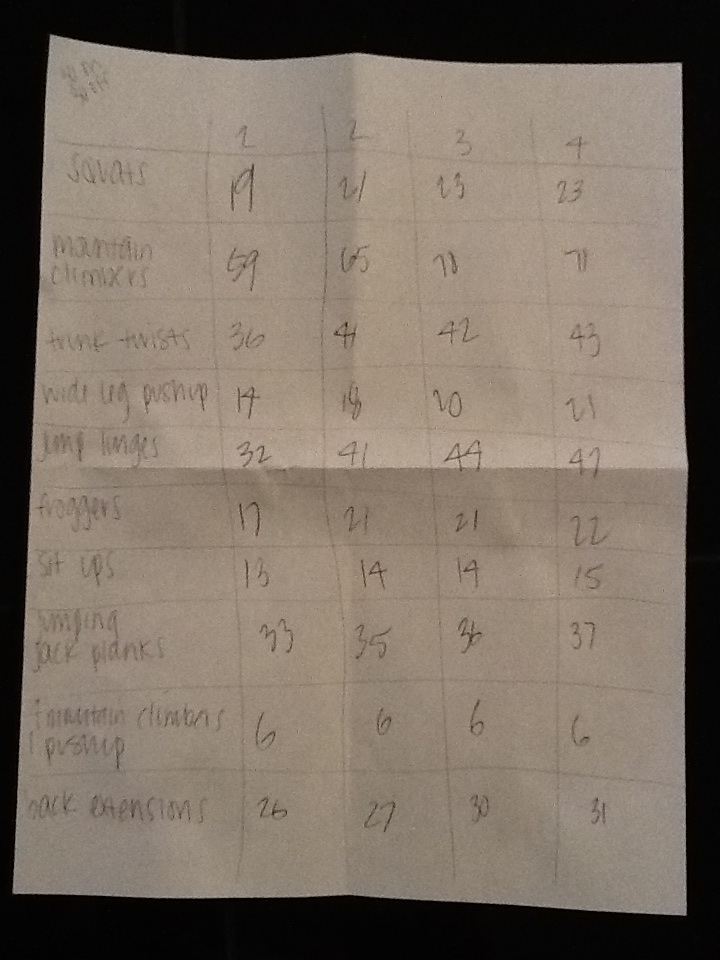 1 2 3 4
squats 19 21 23 23
mountain
climbers 59 65 70 71
trunk twists 36 41 42 43
wide leg pushup 14 18 20 21
jump lunges 32 41 44 47
froggers 17 21 21 22
sit ups 13 14 14 15
jumping
jack planks 33 35 36 37
mountain climbers
1 pushup 6 6 6 6
back extensions 26 27 30 31